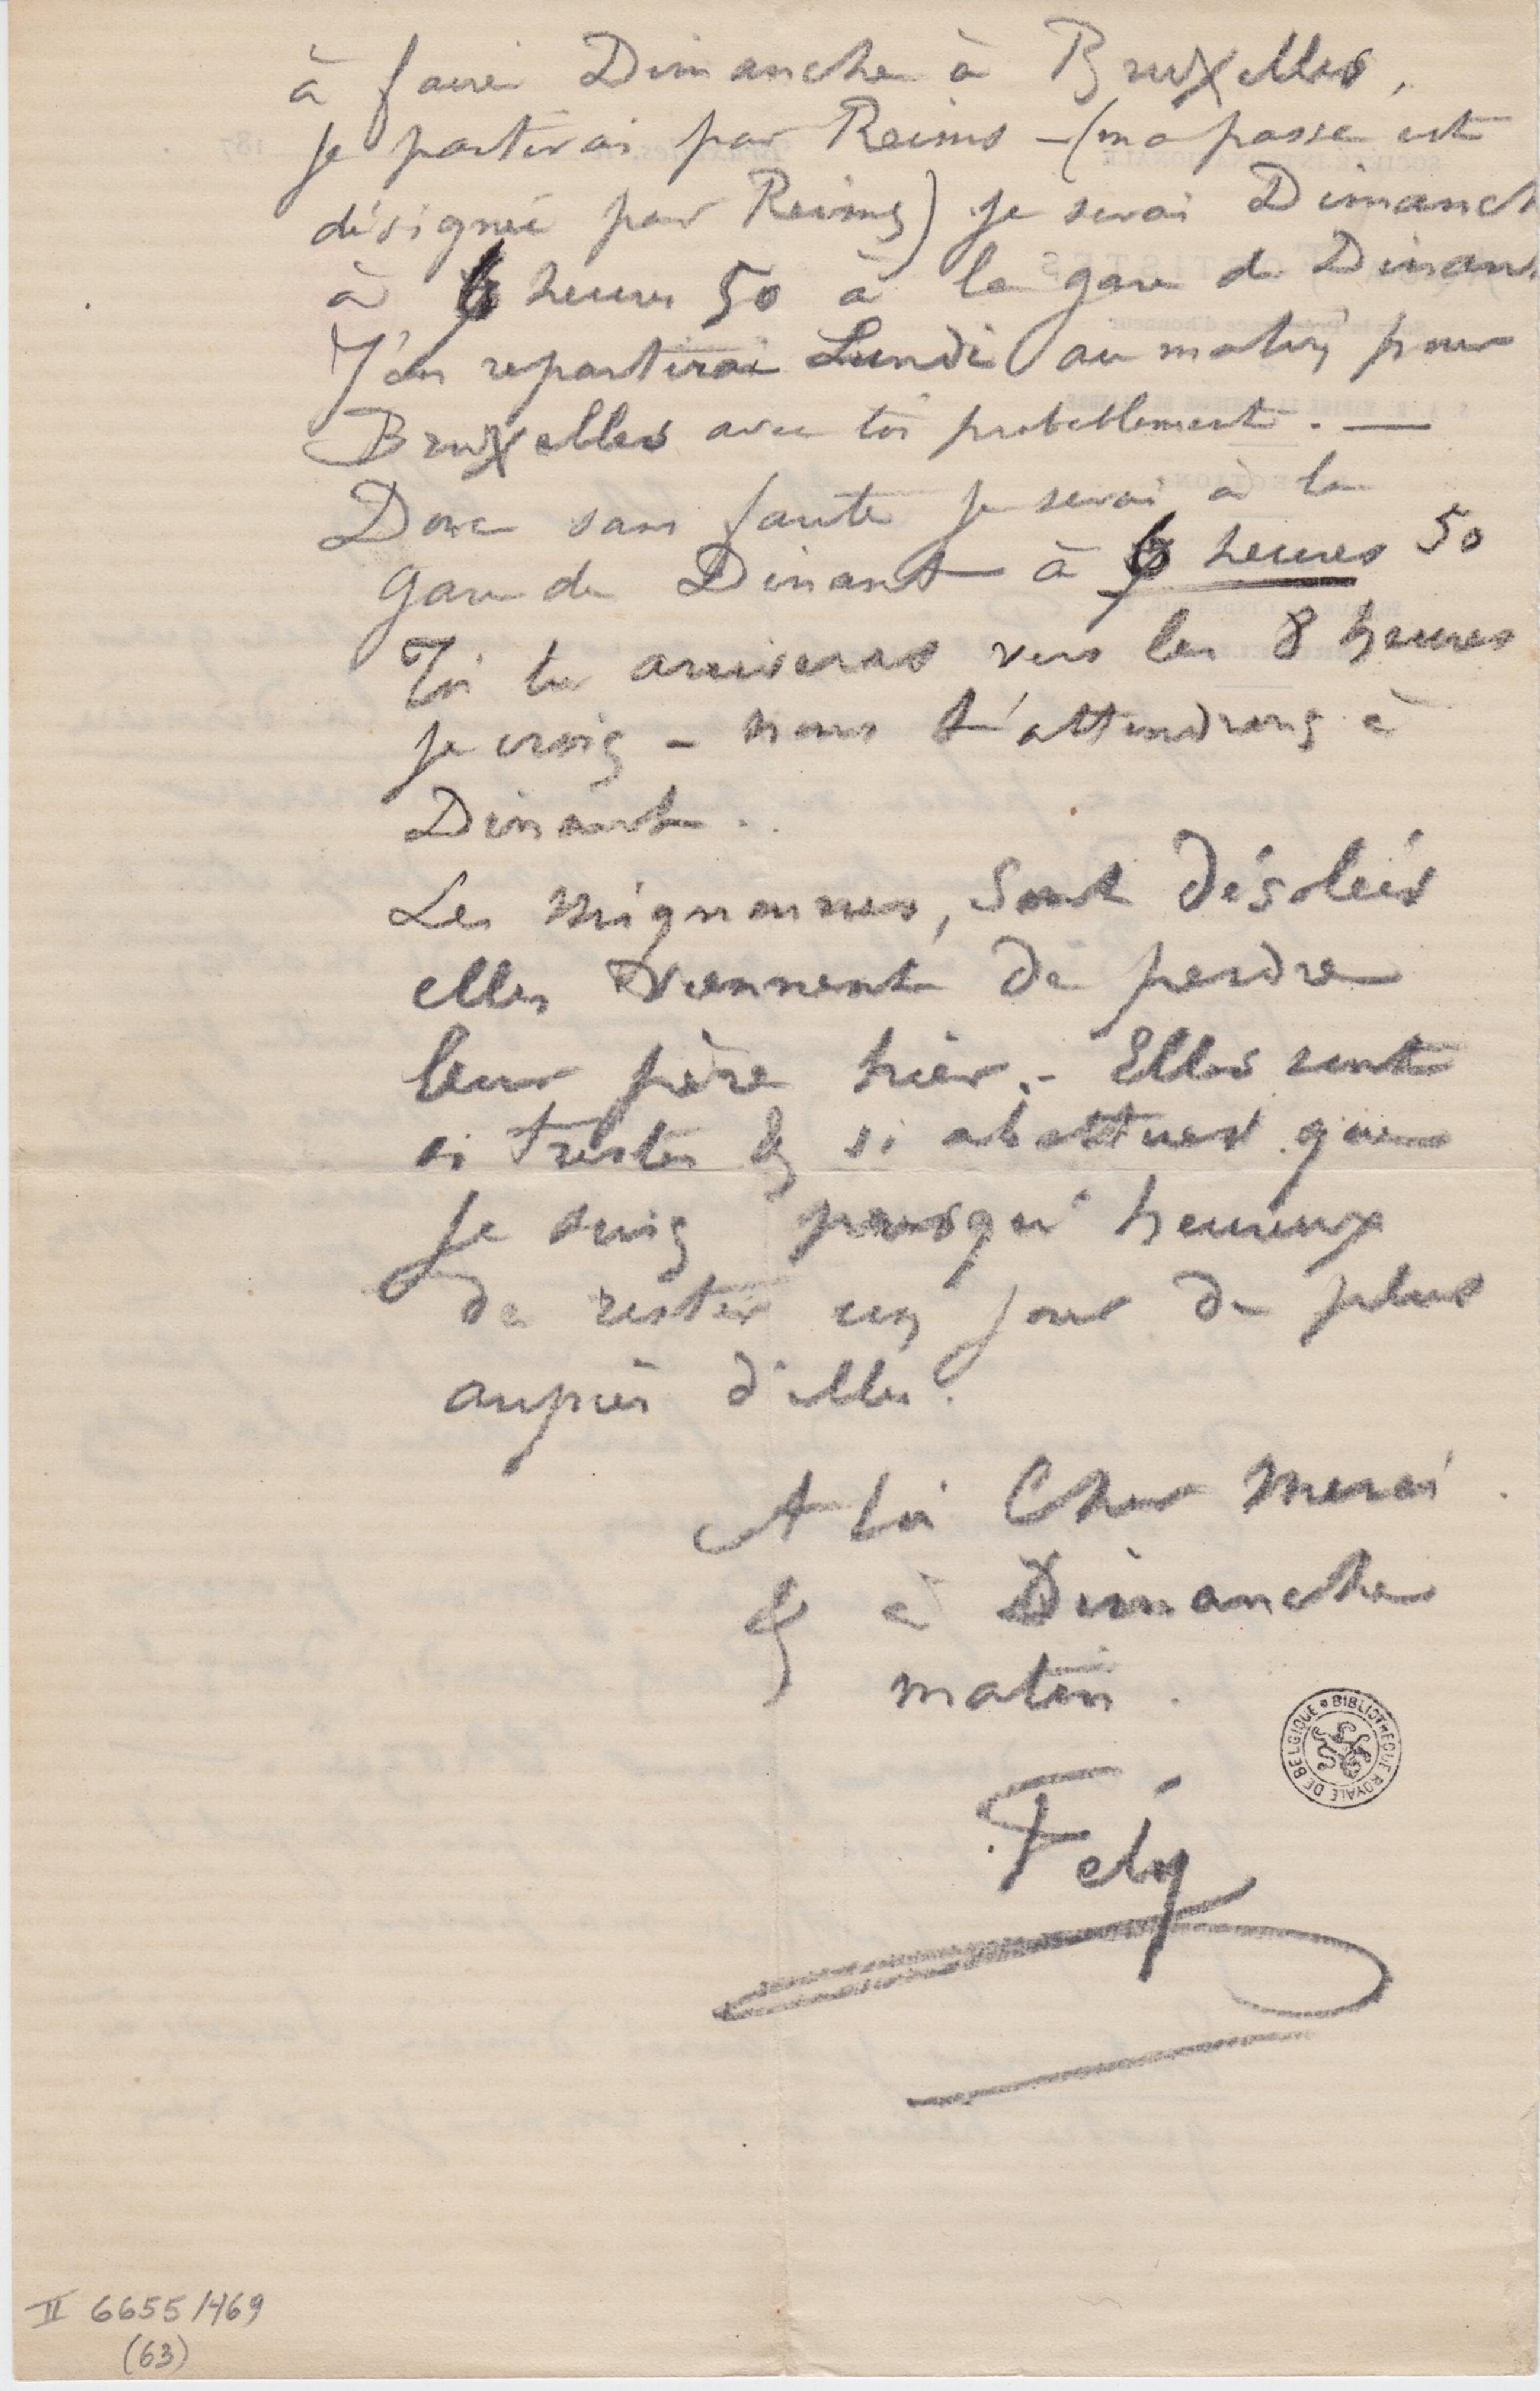 à faire Dimanche à Bruxelles,
je partirai par Reims – (ma passe est
désignée par Reims) je serai Dimanch
à 6 heures 50 à la gare de Dinan
J'en repartirai Lundi au matin pour
Bruxelles avec toi probablement. —
Donc sans faute je serai à la
gare de Dinant à 6 heures 50
Toi tu arriveras vers les 8 heures
je crois – nous t'attendrons à
Dinant.
Les mignonnes, sont désolées
elles viennent de perdre
leur père hier. – Elles sont
si tristes & si abattues que
je suis presqu' heureux
de rester un jour de plus
auprès d'elles.
A toi Cher merci
& à Dimanche
matin.
Fély
BIBLIOTHEQUE ROYALE DE BELGIQUE
II 6655/469
(63)